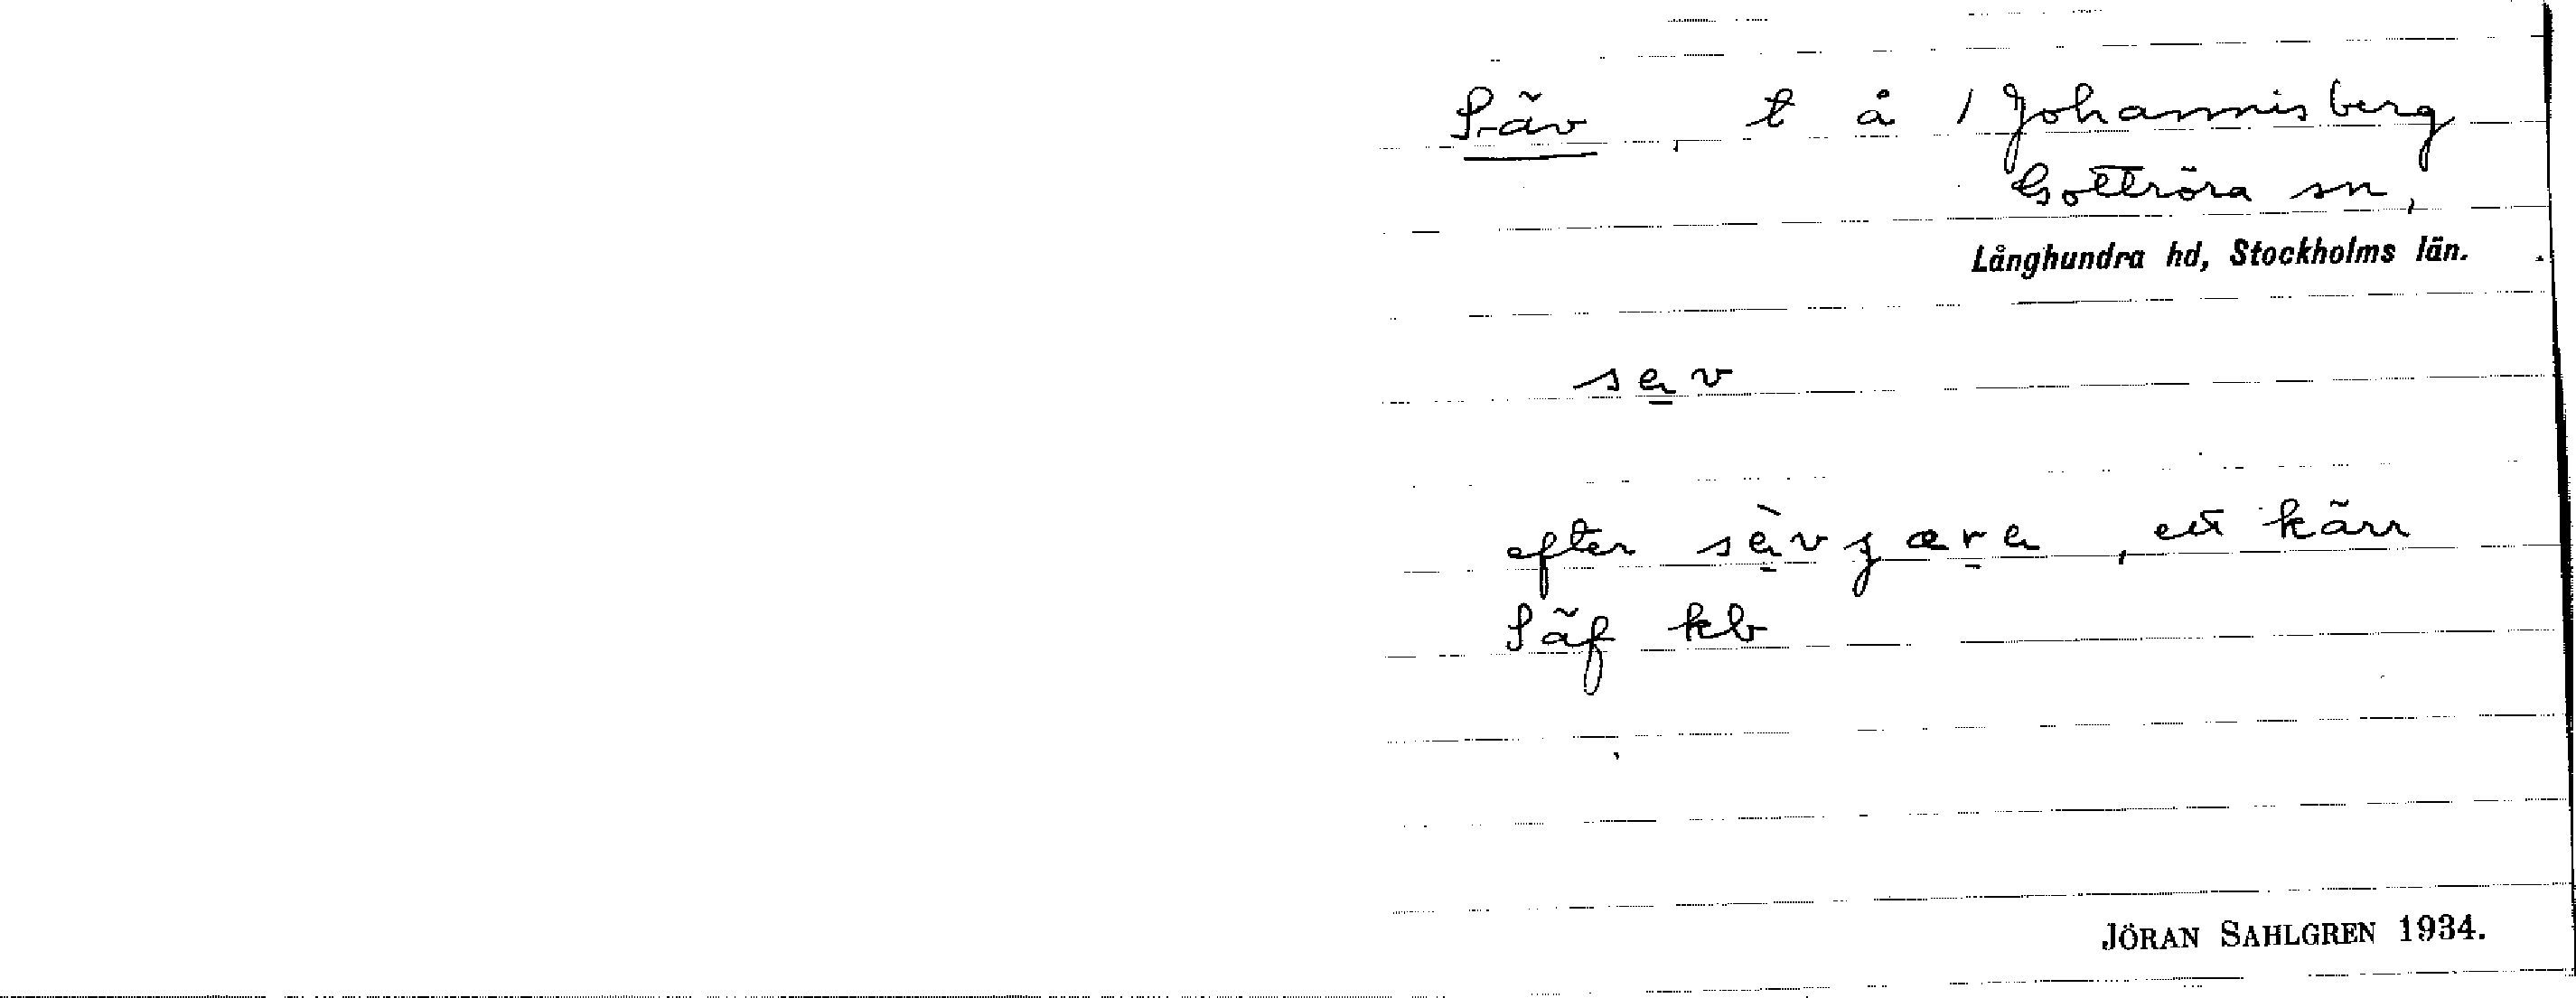 Säv, t å / Johannisberg
Gottröra sn,
Långhundra hd, Stockholms län.
sev
efter sèvzæra, ett kärr
Säf kb
JÖRAN SAHLGREN 1934.